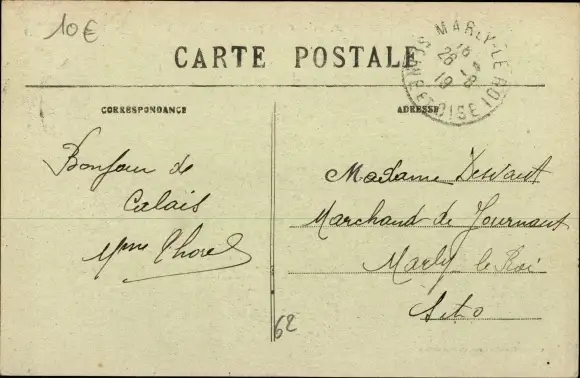 10 €
CARTE POSTALE
MARLY-LE-ROI
SEINE-ET-OISE
18
26 - 8
19
CORRESPONDANCE
ADRESSE
Bonjour de
Calais
Mme Thorel
Madame
Marchand de Journaux
Marly le Roi
S et O
62